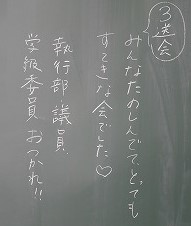 3送会
みんなたのしんでて、とっても
すてきな会でした♡
執行部 議員
学級委員 おつかれ!!